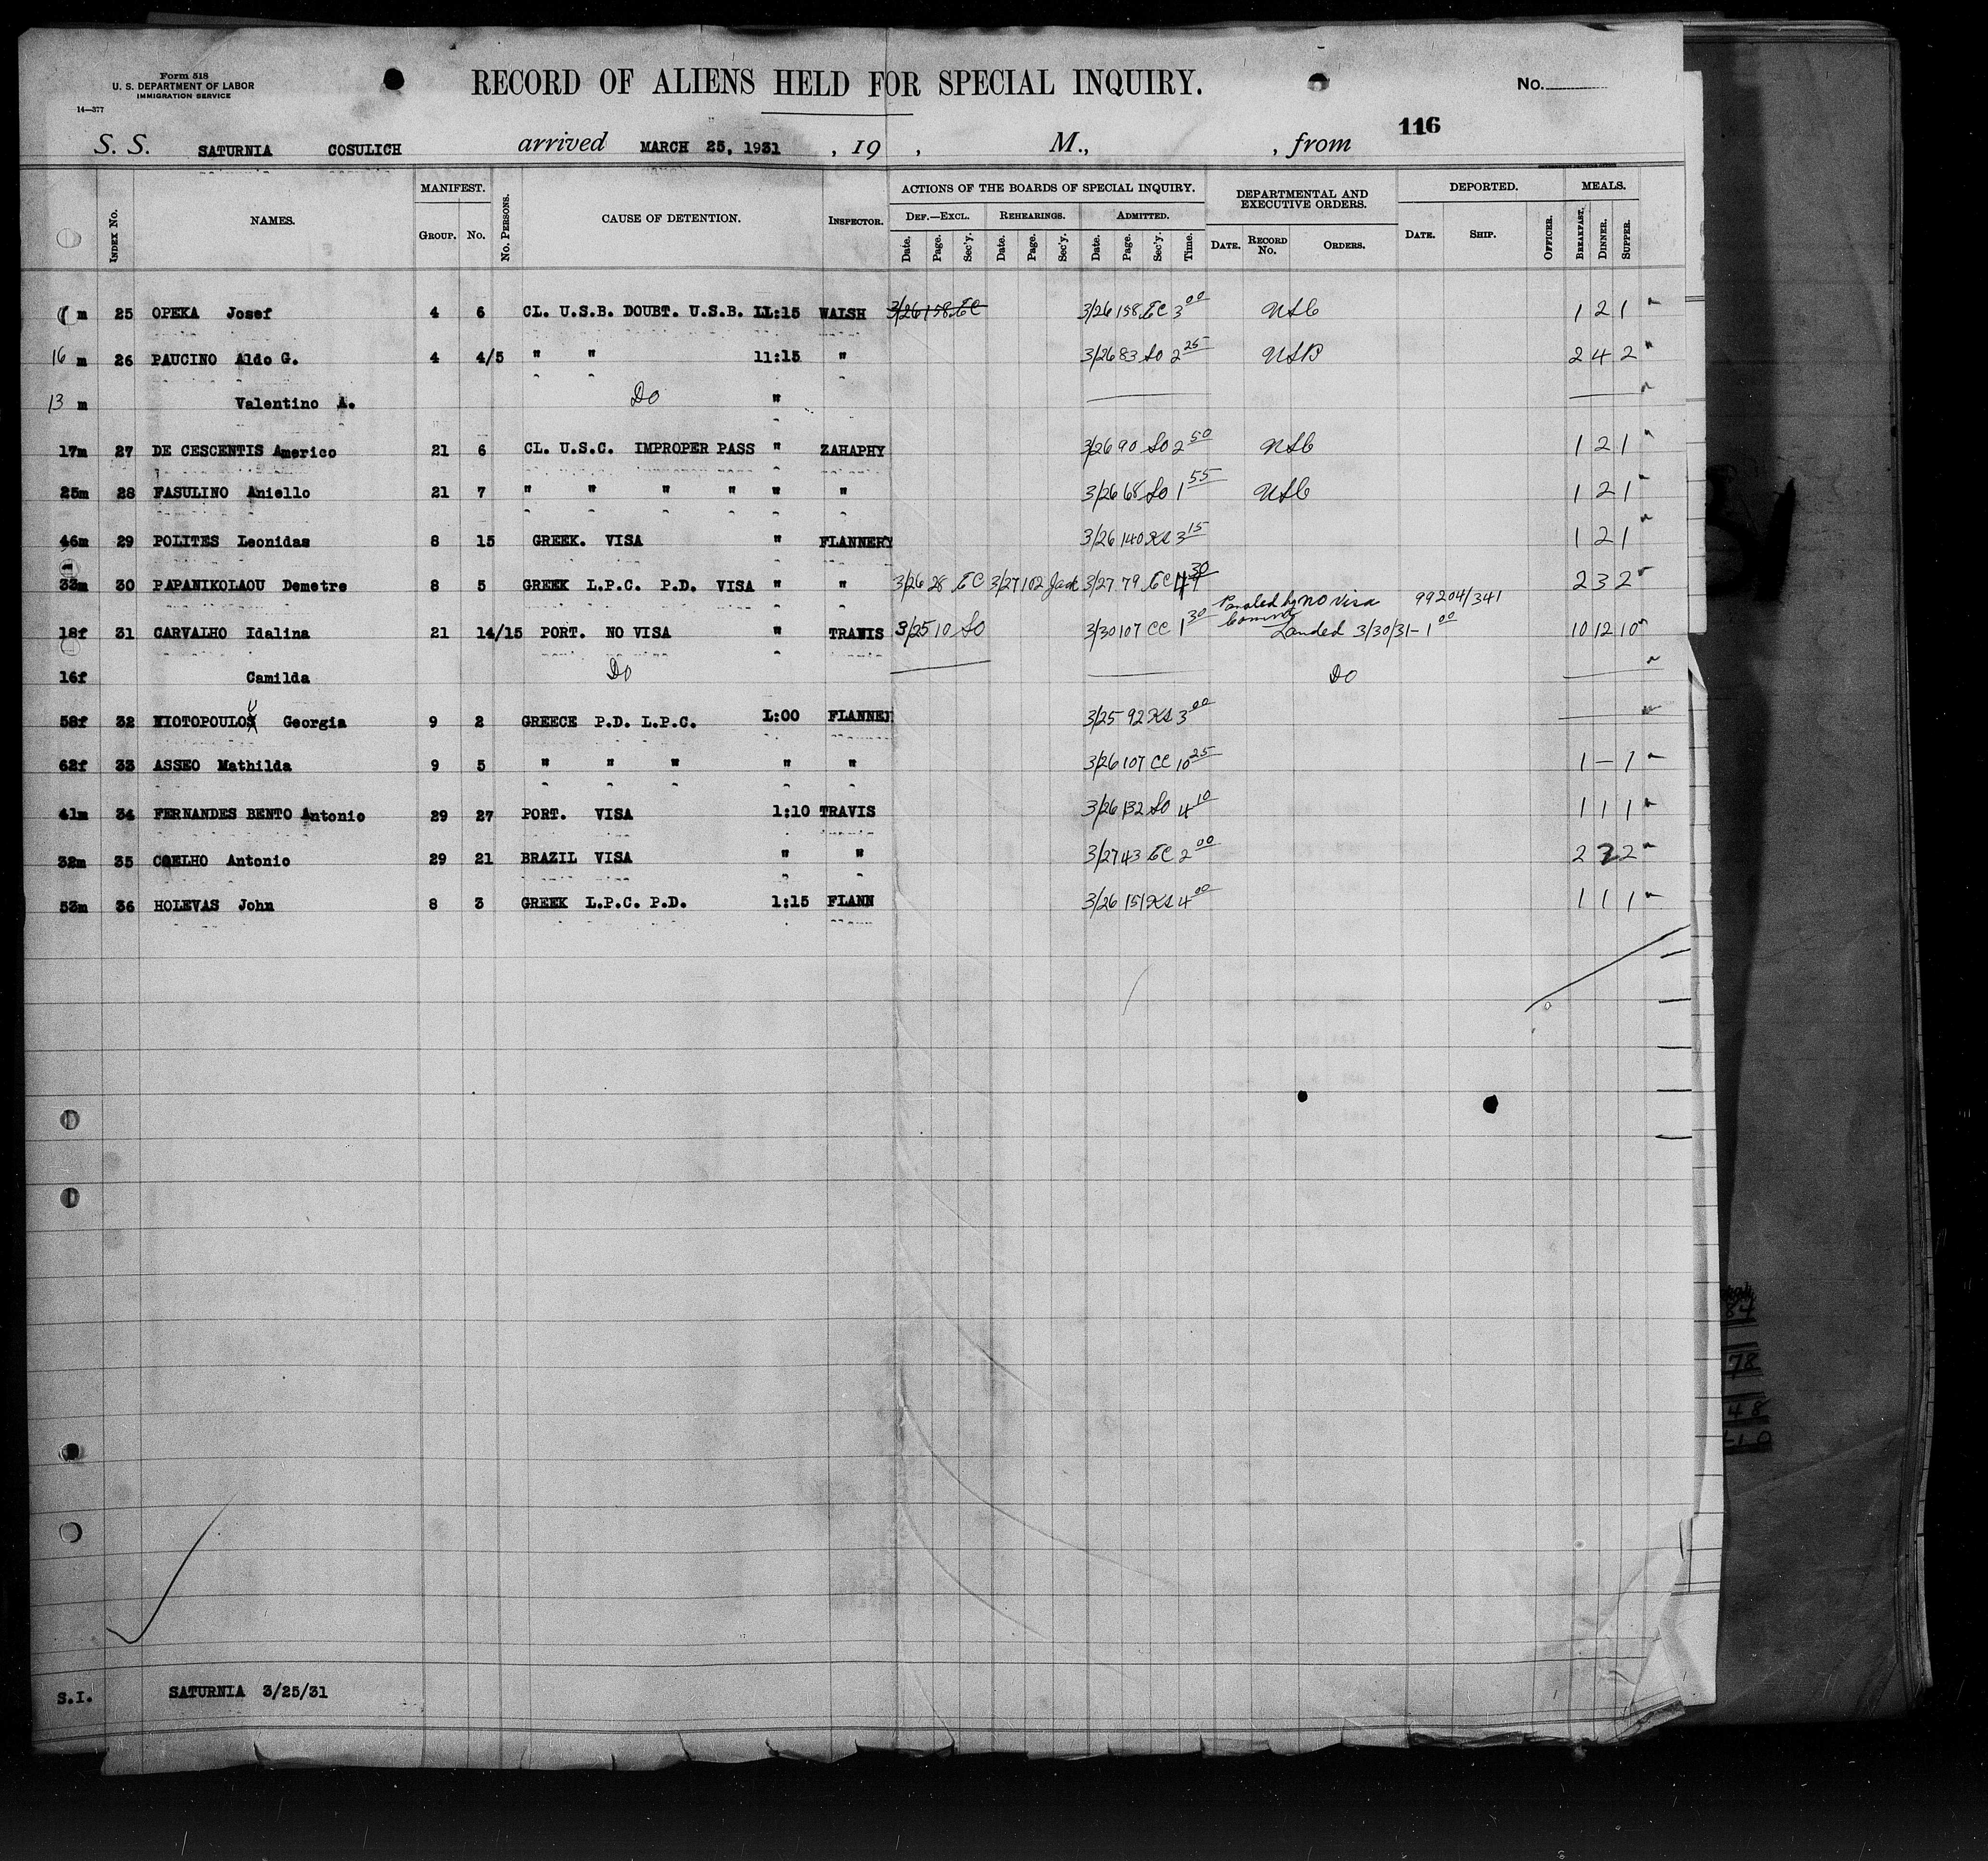 Form 518
U. S. DEPARTMENT OF LABOR
IMMIGRATION SERVICE
14—377
RECORD OF ALIENS HELD FOR SPECIAL INQUIRY.
No.
116
S. S. SATURNIA COSULICH arrived MARCH 25, 1931 , 19 , M., , from
INDEX No. NAMES. MANIFEST. GROUP. No. No. PERSONS. CAUSE OF DETENTION. INSPECTOR. ACTIONS OF THE BOARDS OF SPECIAL INQUIRY. DEF.—EXCL. Date. Page. Sec'y. REHEARINGS. Date. Page. Sec'y. ADMITTED. Date. Page. Sec'y. Time. DEPARTMENTAL AND EXECUTIVE ORDERS. DATE. RECORD No. ORDERS. DEPORTED. DATE. SHIP. OFFICER. MEALS. BREAKFAST. DINNER. SUPPER.
m 25 OPEKA Josef 4 6 CL. U.S.B. DOUBT. U.S.B. LL:15 WALSH 3/26 158 EC 3/26 158 EC 3 00 USC 1 2 1
16 m 26 PAUCINO Aldo G. 4 4/5 " " 11:15 " 3/26 83 SO 2 25 USB 2 4 2
13 m Valentino A. Do "
17m 27 DE CESCENTIS Americo 21 6 CL. U.S.C. IMPROPER PASS " ZAHAPHY 3/26 90 SO 2 50 USC 1 2 1
25m 28 FASULINO Aniello 21 7 " " " " " " 3/26 68 SO 1 55 USC 1 2 1
46m 29 POLITES Leonidas 8 15 GREEK. VISA " FLANNERY 3/26 140 KS 3 15 1 2 1
33m 30 PAPANIKOLAOU Demetre 8 5 GREEK L.P.C. P.D. VISA " " 3/26 28 EC 3/27 102 Jack 3/27 79 EC 4 30 2 3 2
Paroled by no visa 99204/341
18f 31 CARVALHO Idalina 21 14/15 PORT. NO VISA " TRAVIS 3/25 10 SO 3/30 107 CC 1 30 Landed 3/30/31 - 1 00 10 12 10
16f Camilda Do Do
58f 32 NIOTOPOULOU Georgia 9 2 GREECE P.D. L.P.C. L:00 FLANNE 3/25 92 KS 3 00
62f 33 ASSEO Mathilda 9 5 " " " " " 3/26 107 CC 10 25 1 – 1
41m 34 FERNANDES BENTO Antonio 29 27 PORT. VISA 1:10 TRAVIS 3/26 132 SO 4 10 1 1 1
32m 35 COELHO Antonio 29 21 BRAZIL VISA " " 3/27 43 EC 2 00 2 2 2
53m 36 HOLEVAS John 8 3 GREEK L.P.C. P.D. 1:15 FLANN 3/26 151 KS 4 00 1 1 1
84
78
48
S.I. SATURNIA 3/25/31